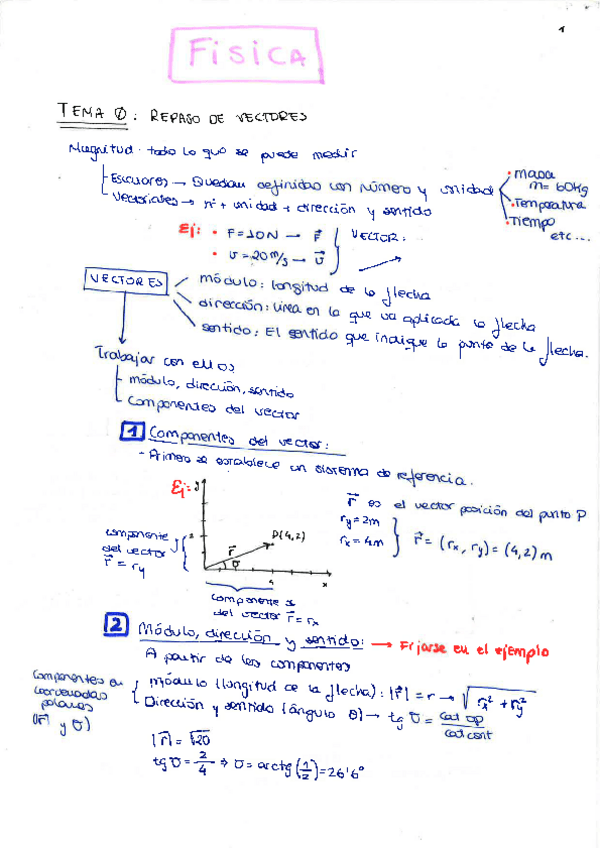 1
Fisica
TEMA 0: REPASO DE VECTORES
Magnitud: todo lo que se puede medir
Escalares → Quedan definidas con número y unidad
• masa
m = 60kg
• Temperatura
• Tiempo
etc...
Vectoriales → nº + unidad + dirección y sentido
Ej: • F = 10 N → F⃗
• v = 20 m/s → v⃗
VECTOR:
VECTORES
módulo: longitud de la flecha
dirección: línea en la que va aplicada la flecha
sentido: El sentido que indique la punta de la flecha.
Trabajar con ellos
- módulo, dirección, sentido
- componentes del vector
1 Componentes del vector:
- Primero se establece un sistema de referencia.
Ej:
y
2
componente y
del vector
r⃗ = ry
r⃗
θ
P(4,2)
4
x
componente x
del vector r⃗ = rx
r⃗ es el vector posición del punto P
ry = 2m
rx = 4m
r⃗ = (rx, ry) = (4,2) m
2 Módulo, dirección y sentido: → Fijarse en el ejemplo
A partir de las componentes
Componentes en
coordenadas
polares
(|r⃗| y θ)
módulo (longitud de la flecha): |r⃗| = r → √(rx² + ry²)
Dirección y sentido (ángulo θ) → tg θ = cat op / cat cont
|r⃗| = √20
tg θ = 2/4 ⇒ θ = arctg (1/2) = 26'6°